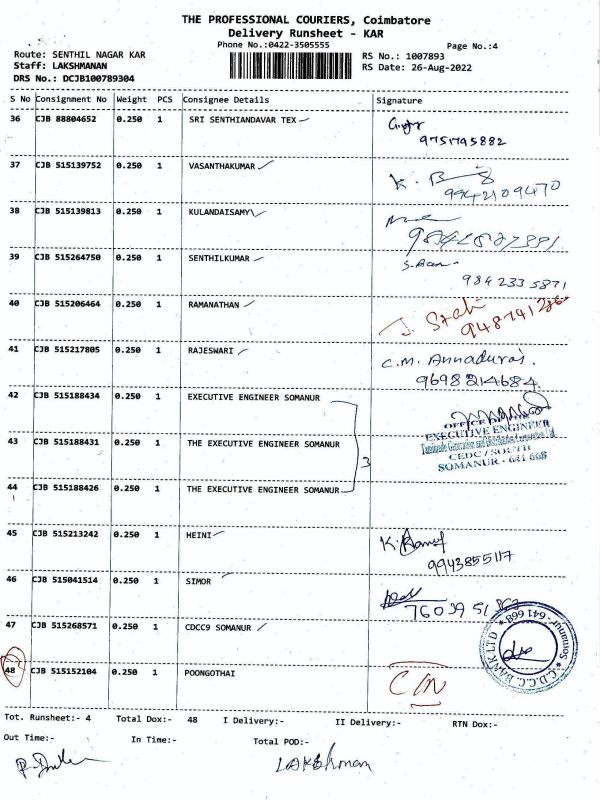 THE PROFESSIONAL COURIERS, Coimbatore
Delivery Runsheet - KAR
Phone No.:0422-3505555
Page No.:4
Route: SENTHIL NAGAR KAR
RS No.: 1007893
Staff: LAKSHMANAN
RS Date: 26-Aug-2022
DRS No.: DCJB100789304
S No Consignment No Weight PCS Consignee Details Signature
36 CJB 88804652 0.250 1 SRI SENTHIANDAVAR TEX
9751795882
37 CJB 515139752 0.250 1 VASANTHAKUMAR
9942109470
38 CJB 515139813 0.250 1 KULANDAISAMY
39 CJB 515264750 0.250 1 SENTHILKUMAR
984 233 5871
40 CJB 515206464 0.250 1 RAMANATHAN
41 CJB 515217805 0.250 1 RAJESWARI
C.M. Annadurai.
9698214684
42 CJB 515188434 0.250 1 EXECUTIVE ENGINEER SOMANUR
EXECUTIVE ENGINEER
43 CJB 515188431 0.250 1 THE EXECUTIVE ENGINEER SOMANUR
3
CEDC / SOUTH
SOMANUR - 641 668
44 CJB 515188426 0.250 1 THE EXECUTIVE ENGINEER SOMANUR
45 CJB 515213242 0.250 1 HEINI
9943855117
46 CJB 515041514 0.250 1 SIMOR
47 CJB 515268571 0.250 1 CDCC9 SOMANUR
C.D.C.C. BANK LTD * Somanur - 641 668 *
48 CJB 515152104 0.250 1 POONGOTHAI
Tot. Runsheet:- 4 Total Dox:- 48 I Delivery:- II Delivery:- RTN Dox:-
Out Time:- In Time:- Total POD:-
Lakshmanan